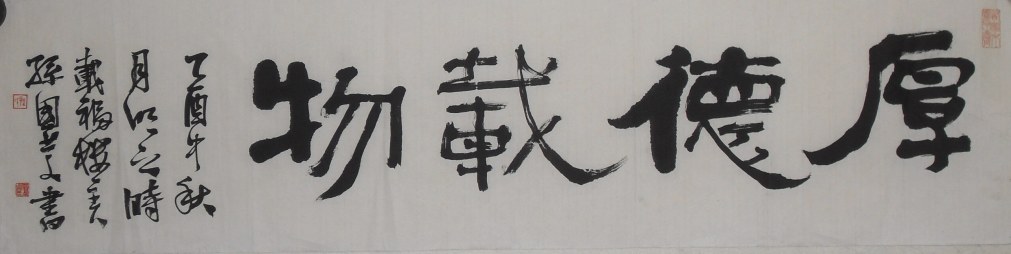 厚德載物
乙酉中秋
月明之時
載福樓主人
孫國文書